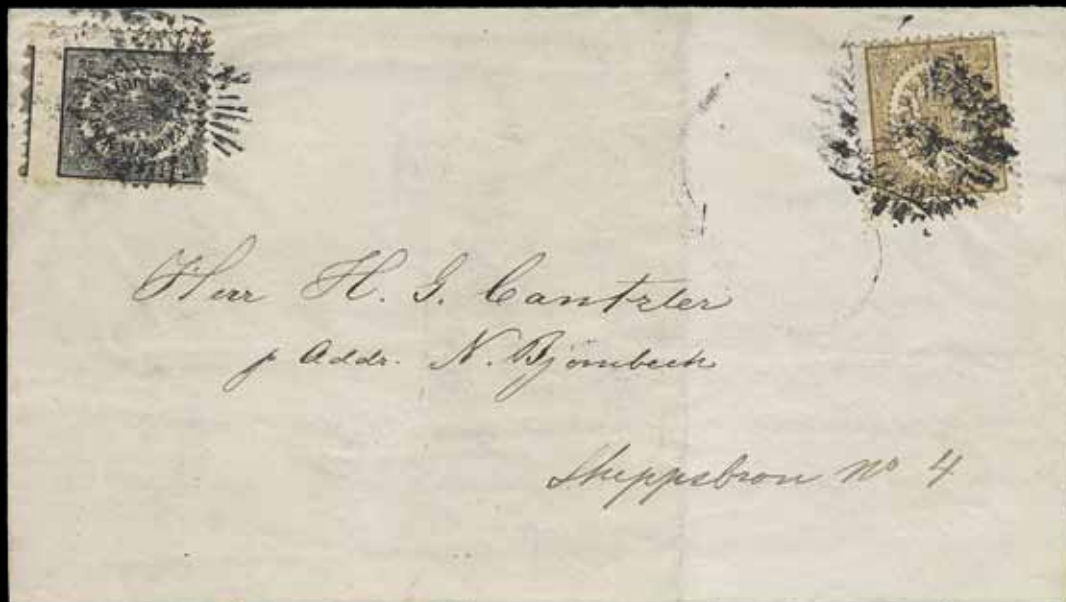 Herr H. G. Cantzler
p Addr. N. Björnbeck
Skeppsbron No 4